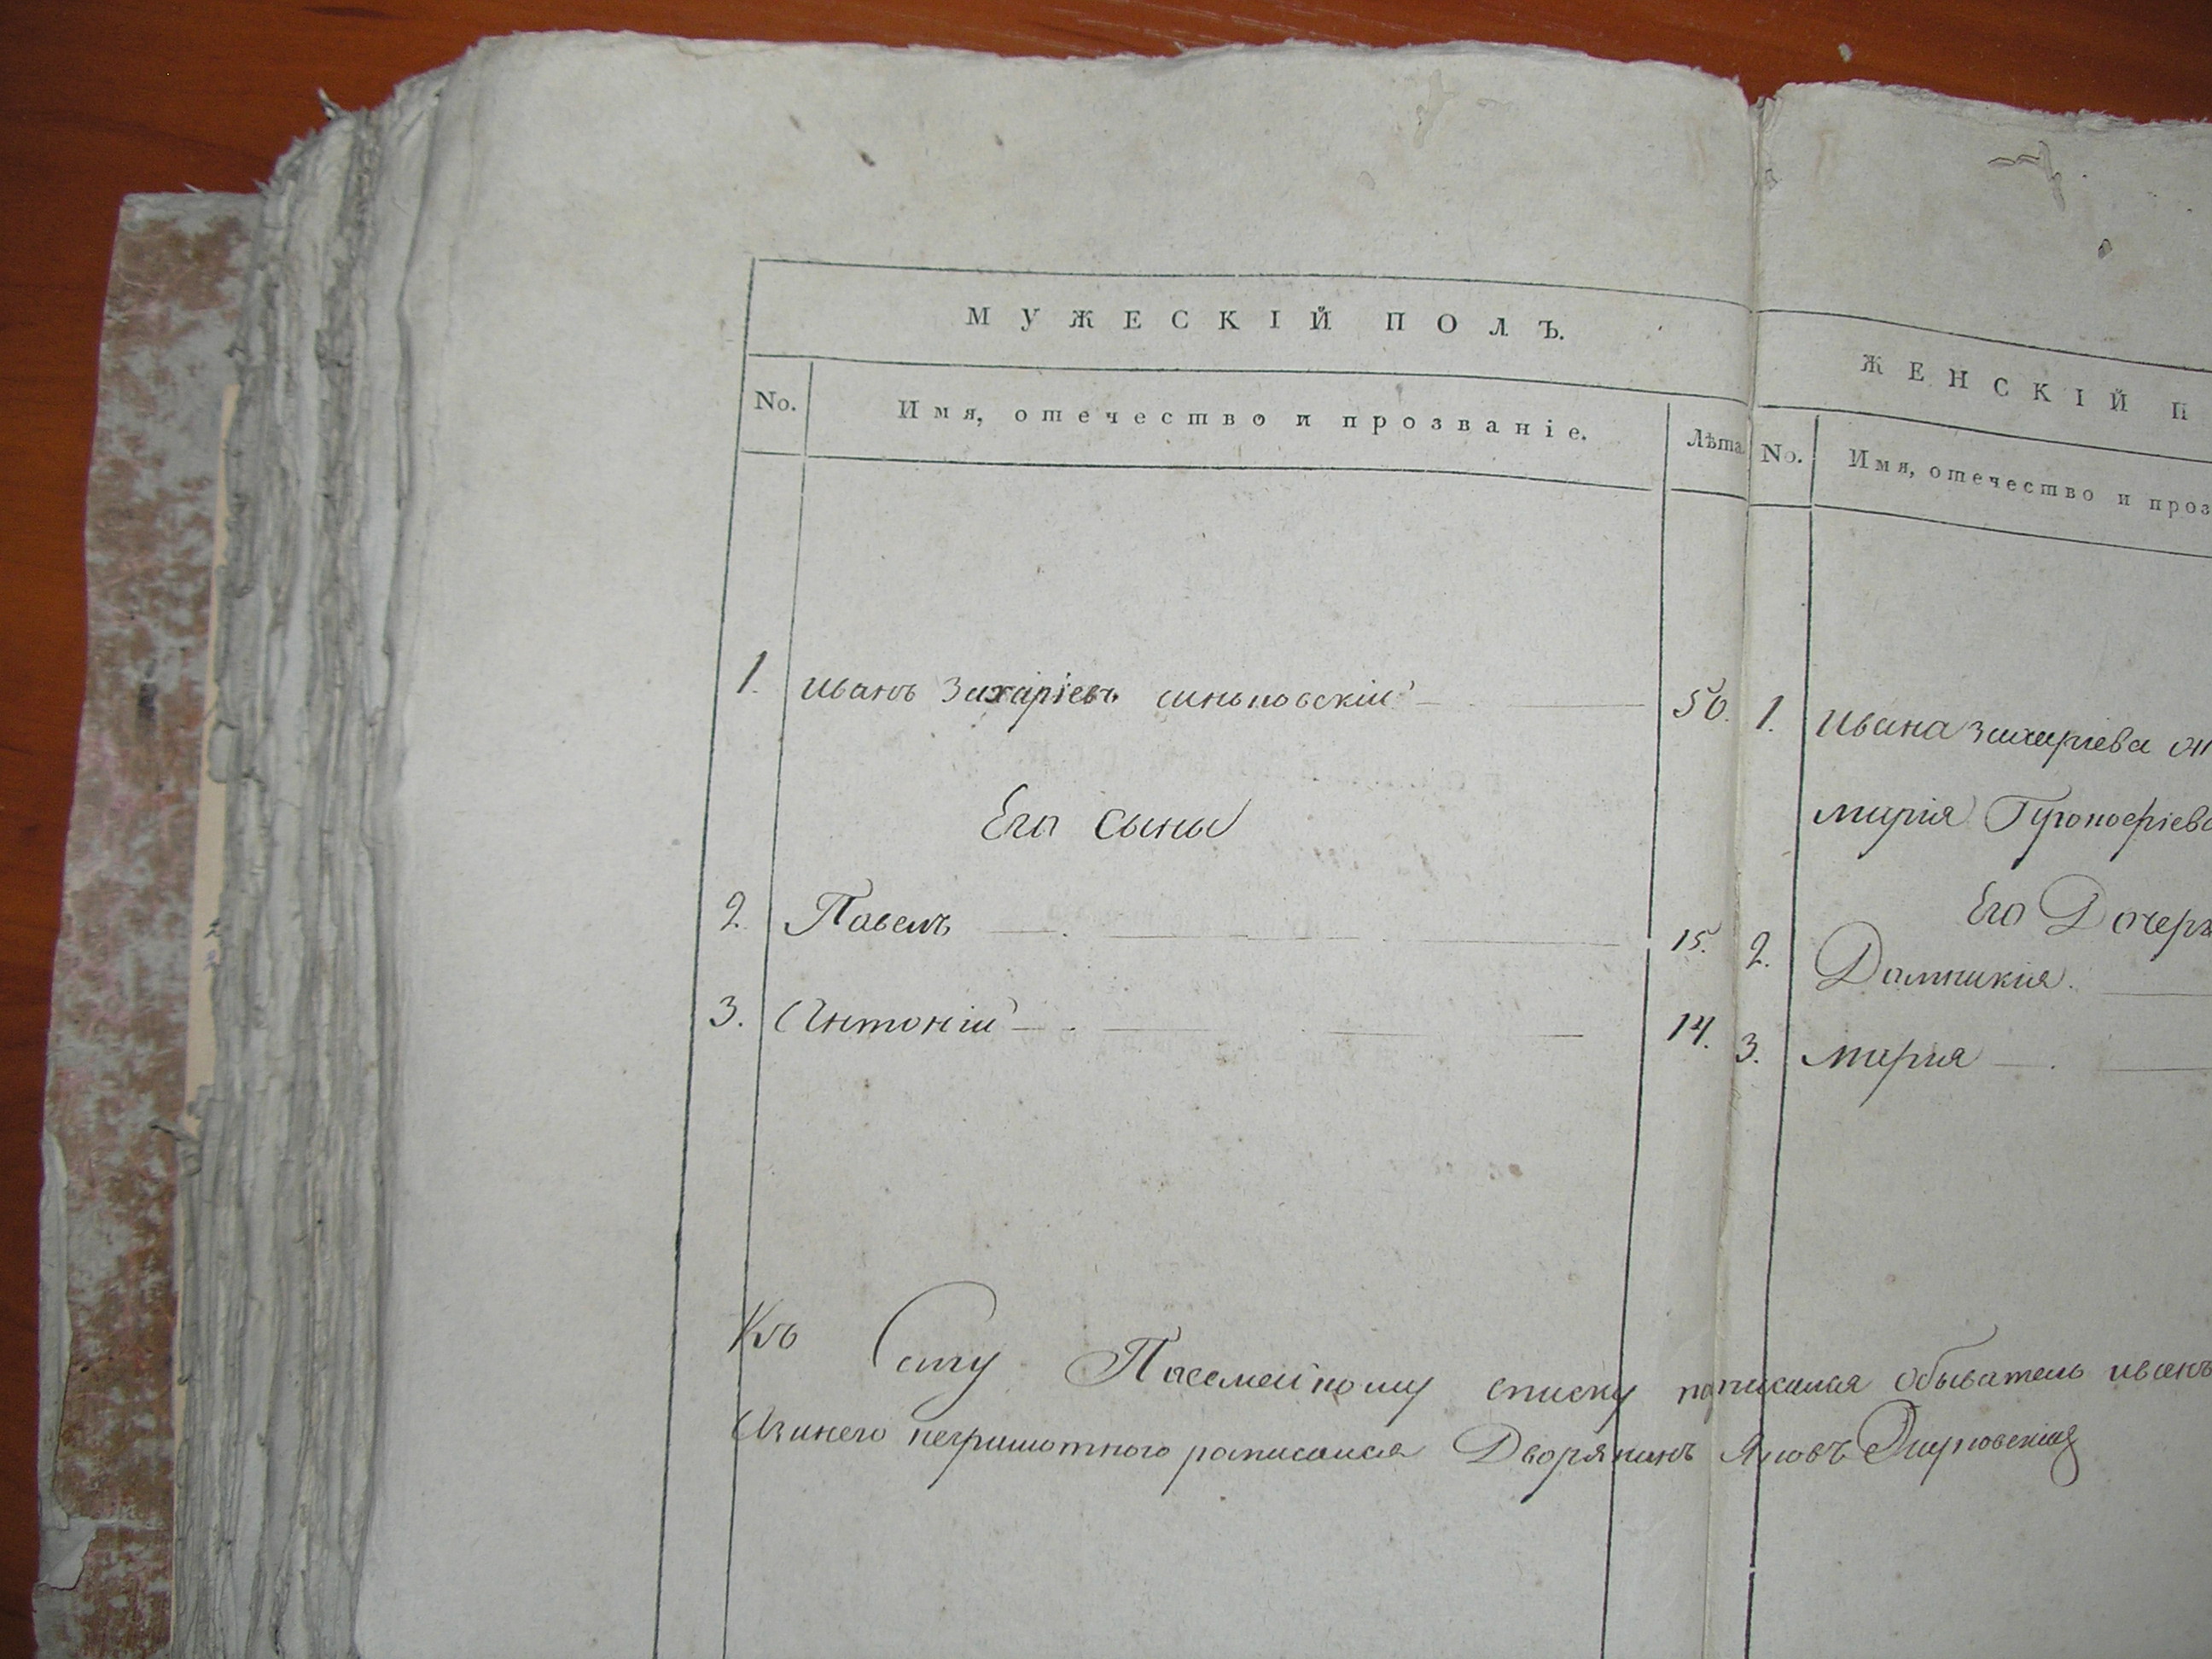 МУЖЕСКІЙ ПОЛЪ.
No. Имя, отечество и прозваніе. Лѣта.
1. иванъ Захаріевъ синьповскій 50.
Его сыны
2. Павелъ 15.
3. Антоній 14.
ЖЕНСКІЙ П
No. Имя, отечество и проз
1. Ивана захаріева
мария Прокофіева
Его Дочери
2. Домникия.
3. мария
Къ Сему Посемейному списку росписался обыватель иванъ
Азанего неграмотного росписался Дворянинъ Яковъ